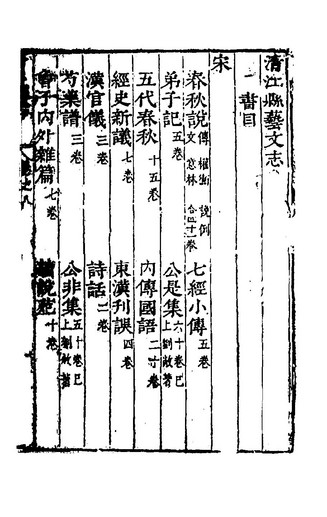 清江縣藝文志
書目
宋
春秋說 傳 權衡 說例 文 意林 合四十一卷 七經小傳 五卷
弟子記 五卷 公是集 六十卷已上劉敞著
五代春秋 十五卷 內傳國語 二十卷
經史新議 七卷 東漢刊誤 四卷
漢官儀 三卷 詩話 二卷
芍藥譜 三卷 公非集 五十卷已上劉攽著
曾子內外雜篇 七卷 續說苑 十卷